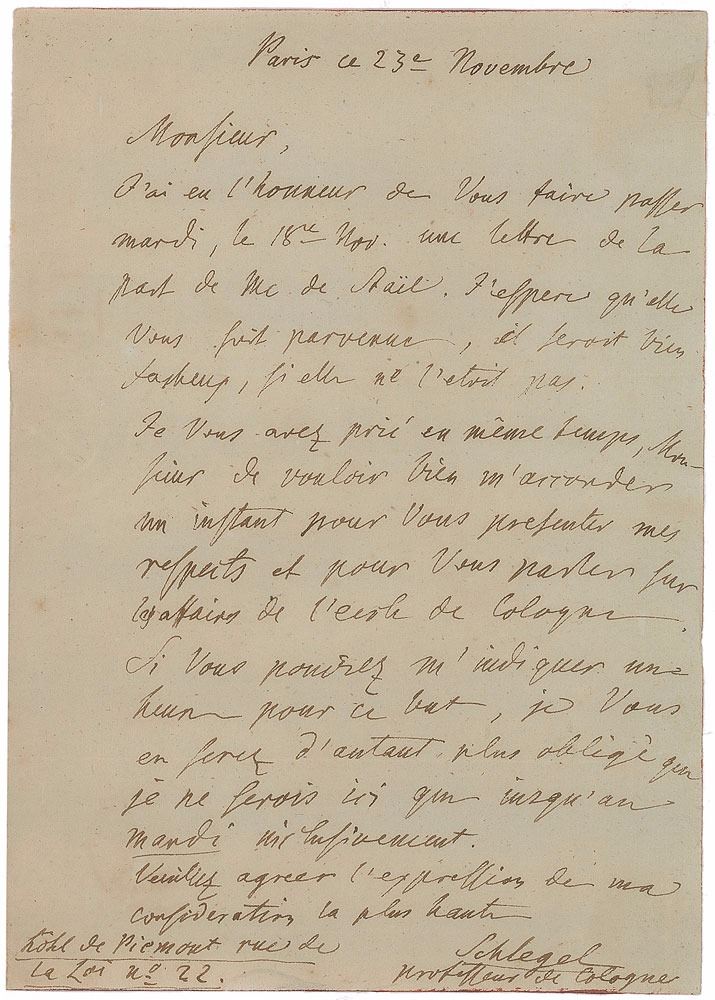 Paris ce 23e Novembre
Monsieur,
J'ai eu l'honneur de Vous faire passer
mardi, le 18re Nov. une lettre de la
part de Me de Staël. J'espere qu'elle
Vous soit parvenue, il seroit bien
facheux, si elle ne l'etoit pas.
Je Vous avez prié en même temps, Mon-
sieur de vouloir bien m'accorder
un instant pour Vous presenter mes
respects et pour Vous parler sur
les affaires de l'ecole de Cologne.
Si Vous pouviez m'indiquer une
heure pour ce but, je Vous
en serez d'autant plus obligé que
je ne serois ici que jusqu'au
mardi inclusivement.
Veuillez agreer l'expression de ma
consideration la plus haute
Hôtel de Piemont rue de
la Loi no 22.
Schlegel
professeur de Cologne